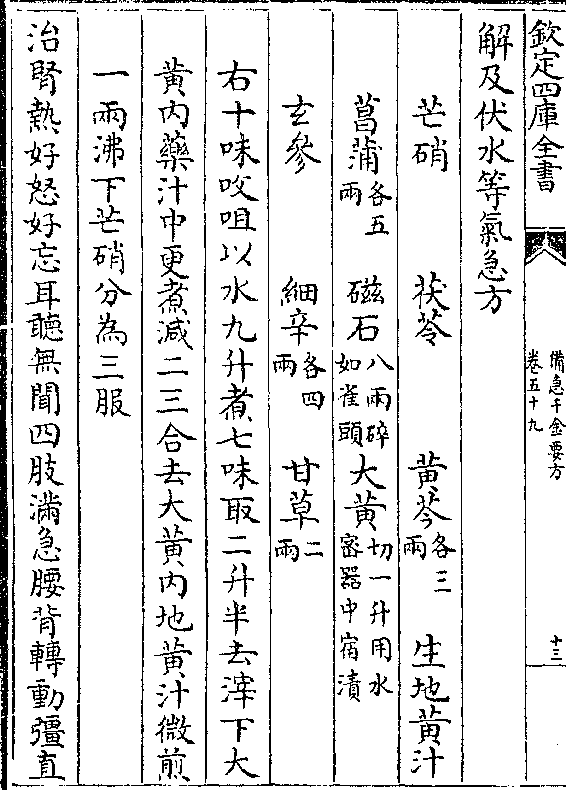 欽定四庫全書
備急千金要方
卷五十九
十三
解及伏水等氣急方
芒硝 茯苓 黄芩各三兩 生地黄汁
菖蒲各五兩 磁石八兩碎如雀頭 大黄切一升用水密器中宿漬
玄參 細辛各四兩 甘草二兩
右十味㕮咀以水九升煮七味取二升半去滓下大
黄内藥汁中更煮減二三合去大黄内地黄汁微煎
一兩沸下芒硝分為三服
治腎熱好怒好忘耳聽無聞四肢滿急腰背轉動彊直